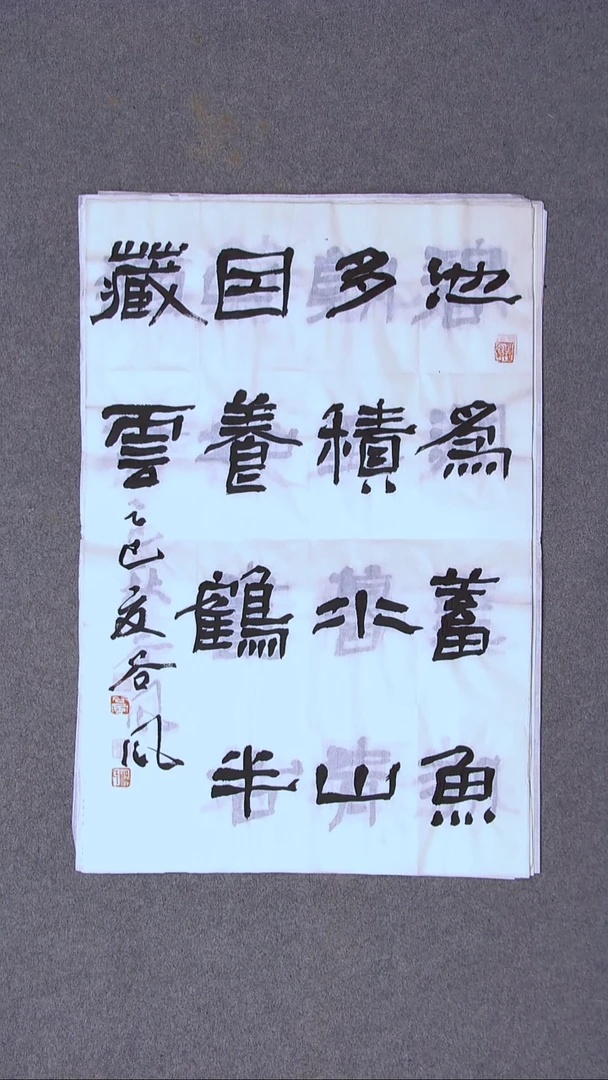 池爲蓄魚
多積水山
因養鶴半
藏雲
乙巳夏谷風